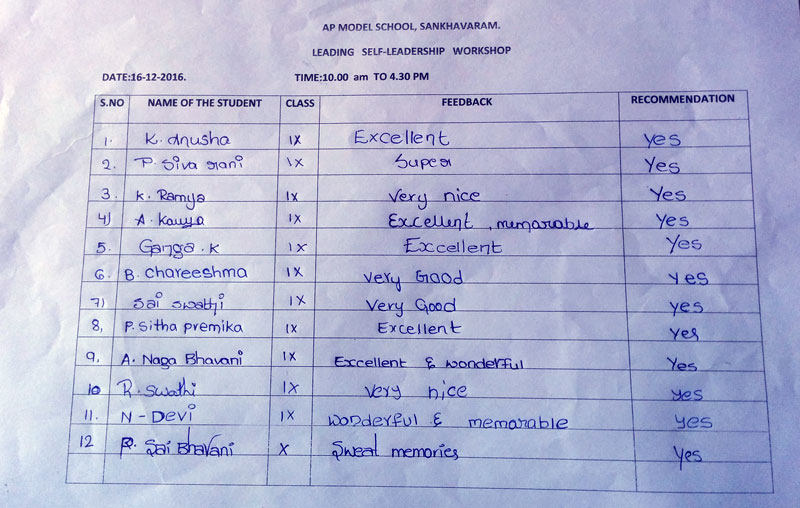 AP MODEL SCHOOL, SANKHAVARAM.
LEADING SELF-LEADERSHIP WORKSHOP
DATE:16-12-2016. TIME:10.00 am TO 4.30 PM
S.NO NAME OF THE STUDENT CLASS FEEDBACK RECOMMENDATION
1. K. Anusha IX Excellent Yes
2. P. Siva rani IX Super Yes
3. K. Ramya IX Very nice Yes
4) A. Kavya IX Excellent, memarable Yes
5. Ganga. K IX Excellent Yes
6. B. Chareeshma IX Very Good Yes
7) Sai Swathi IX Very Good Yes
8, P. Sitha Premika IX Excellent Yes
9. A. Naga Bhavani IX Excellent & wonderful Yes
10 R. Swathi IX Very nice Yes
11. N - Devi IX wonderful & memarable Yes
12 P. Sai Bhavani X Sweat memories Yes